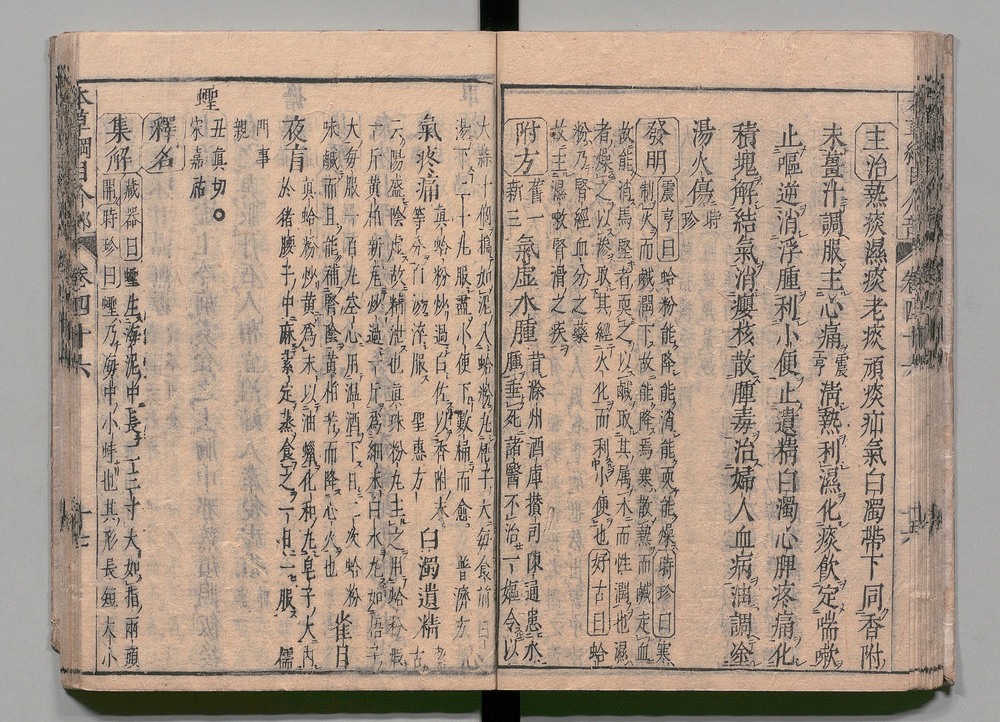 主治熱痰濕痰老痰頑痰疝氣白濁帶下同香附
末薑汁調服主心痛震亨清熱利濕化痰飲定喘嗽
止嘔逆消浮腫利小便止遺精白濁心脾疼痛化
積塊解結氣消癭核散腫毒治婦人血病油調塗
湯火傷時珍
發明震亨曰蛤粉能降能消能耎能燥時珍曰寒
制火而鹹潤下故能降焉寒散熱而鹹走血
故能消焉堅者耎之以鹹取其属水而性潤也濕
者燥之以滲取其經火化而利小便也好古曰蛤
粉乃腎經血分之藥
故主濕嗽腎滑之疾
附方舊一新三氣虛水腫昔滁州酒庫攢司陳通患水
腫垂死諸醫不治一嫗令以
大蒜十個搗如泥入蛤粉丸梧子大每食前白
湯下二十丸服盡小便下數桶而愈普濟方
氣疼痛真蛤粉炒過白佐以香附末
等分白湯淬服聖惠方白濁遺精
云陽盛陰虛故精泄也真珠粉丸主之用蛤粉煅
一斤黃柏新瓦炒過一斤爲細末白水丸如梧子
大每服一百丸空心用温酒下日二次蛤粉
味鹹而且能補腎陰黃柏苦而降心火也
雀目
夜盲真蛤粉炒黃爲末以油蠟化和丸皂子大內
於猪腰子中麻紮定蒸食之一日二服儒
門事
親
蟶
丑真切
宋嘉祐
釋名
集解藏器曰蟶生海泥中長二三寸大如指兩頭
開時珍曰蟶乃海中小蚌也其形長短大小
本草綱目介部
卷四十六
十七